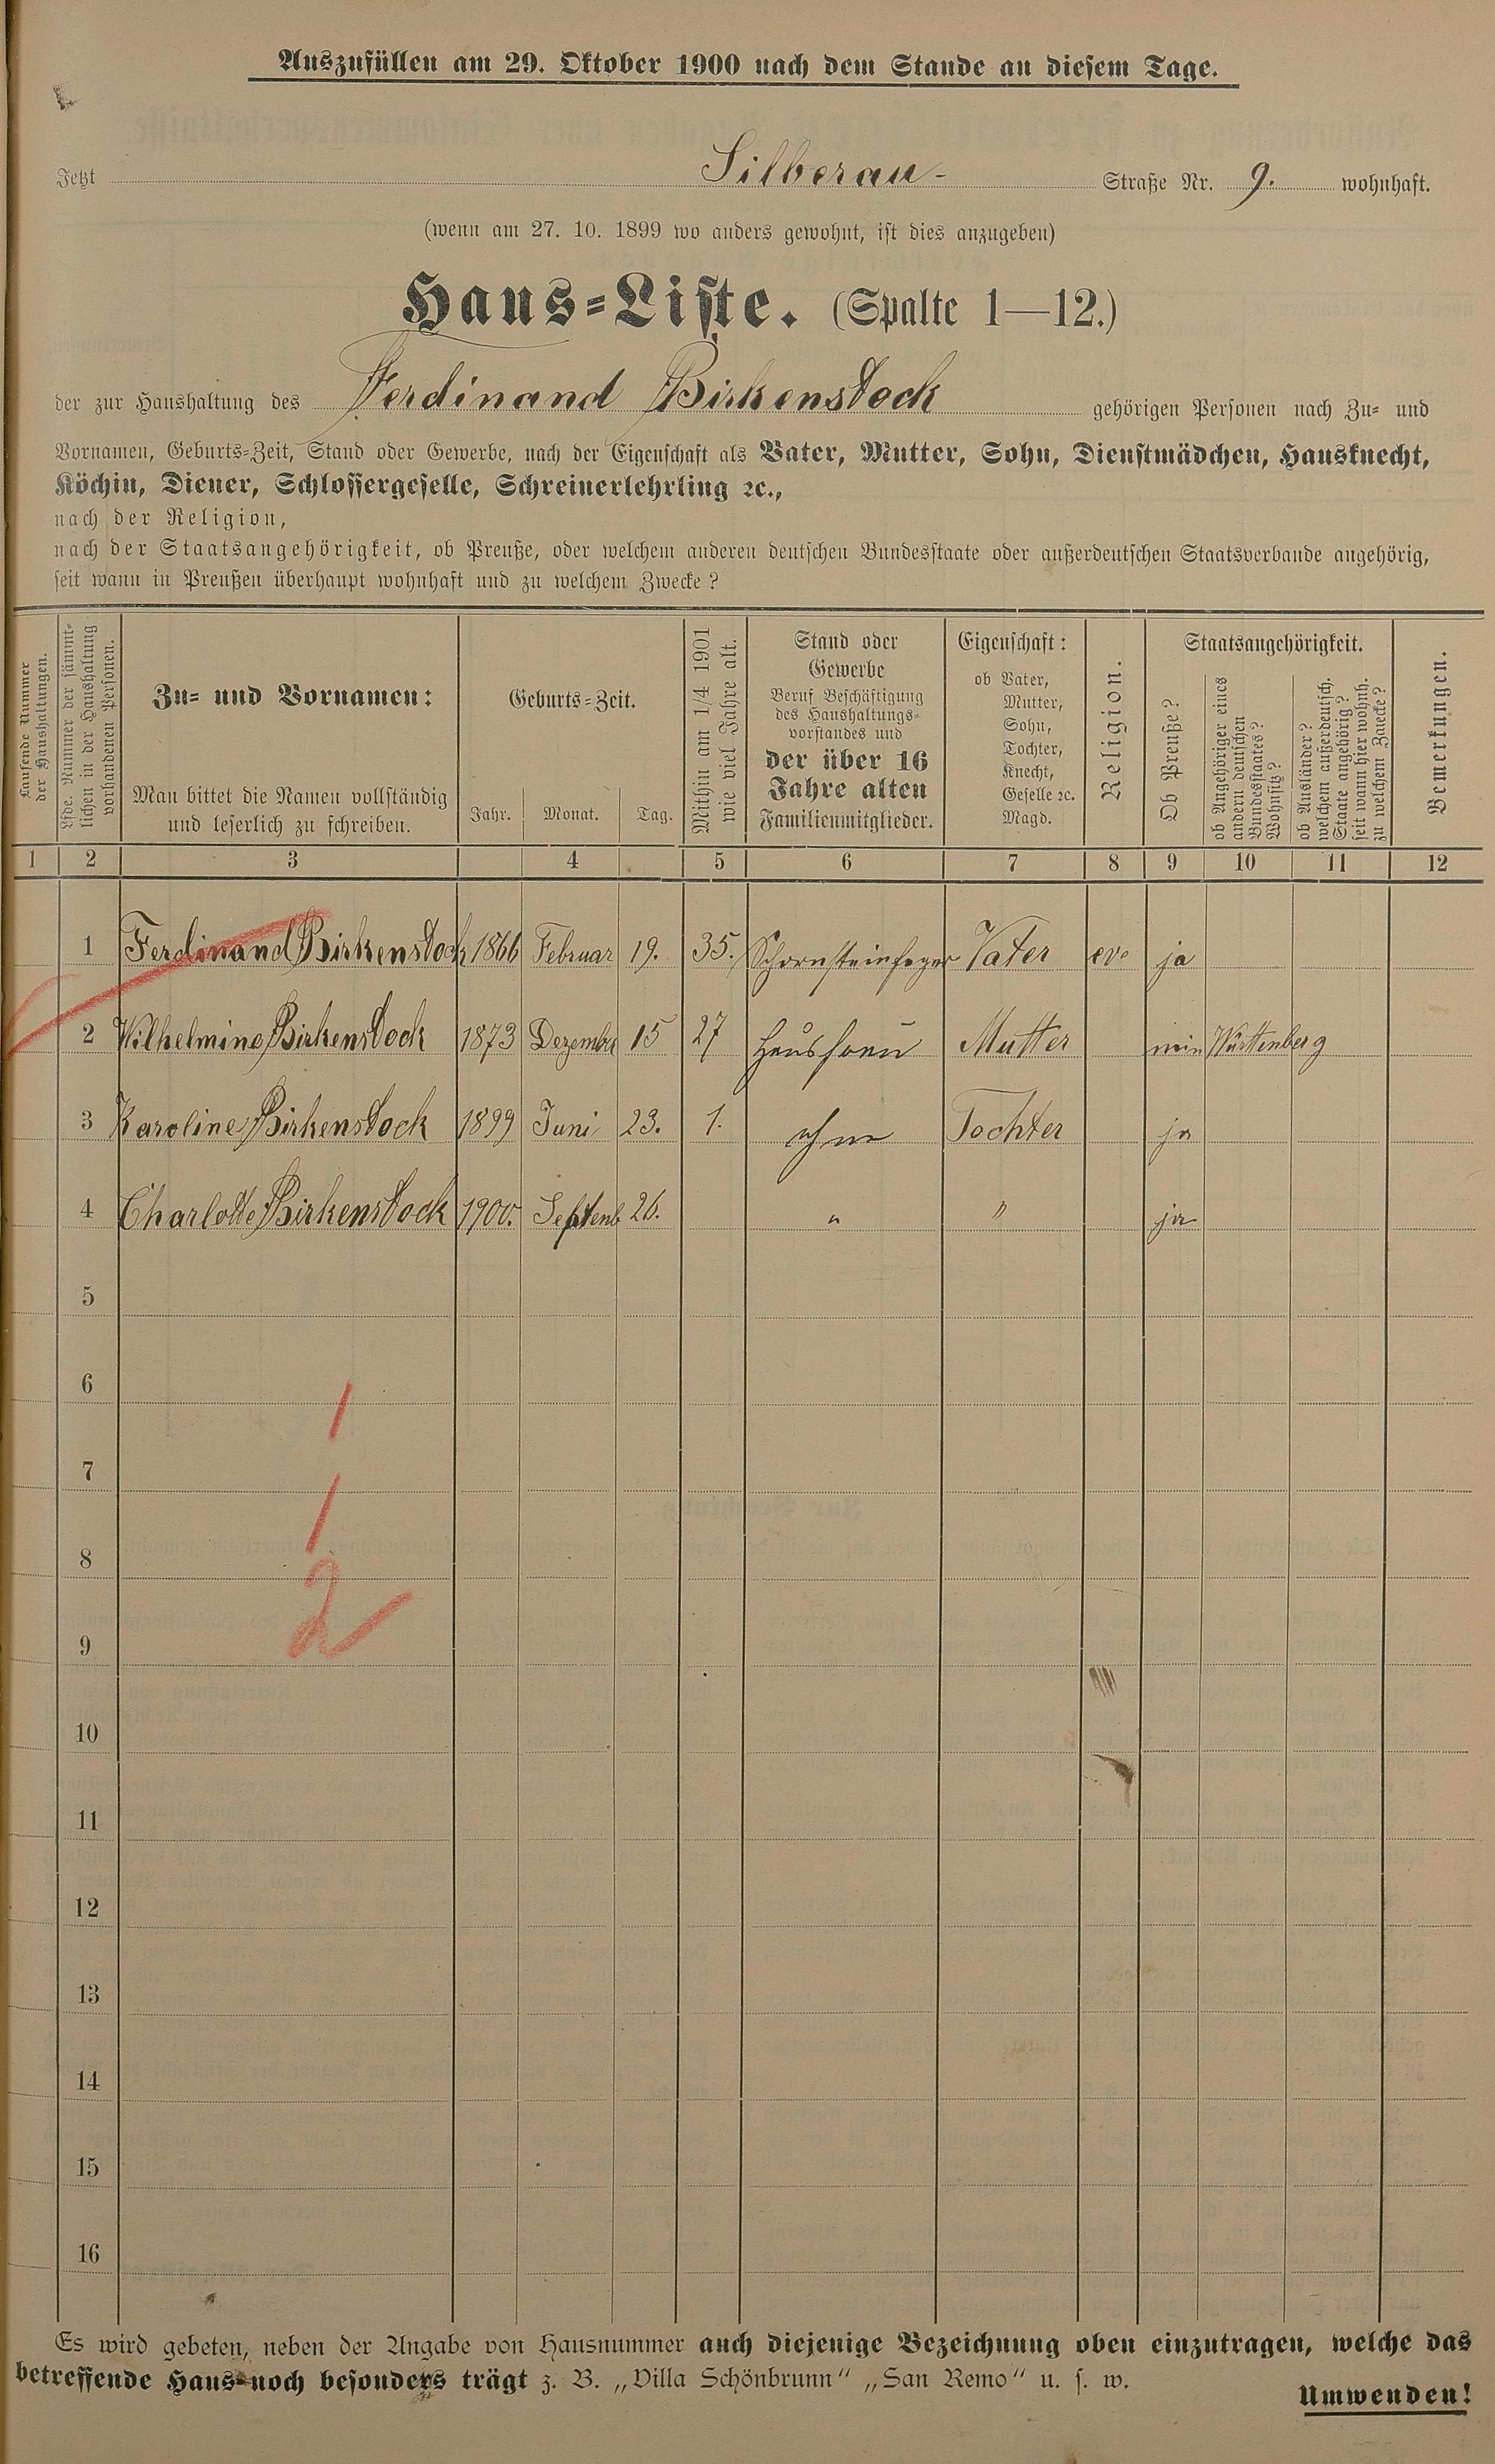 Auszufüllen am 29. Oktober 1900 nach dem Stande an diesem Tage.
Jetzt Silberau- Straße Nr. 9. wohnhaft.
(wenn am 27. 10. 1899 wo anders gewohnt, ist dies anzugeben)
Haus-Liste. (Spalte 1—12.)
der zur Haushaltung des Ferdinand Birkenstock gehörigen Personen nach Zu- und
Vornamen, Geburts-Zeit, Stand oder Gewerbe, nach der Eigenschaft als Vater, Mutter, Sohn, Dienstmädchen, Hausknecht,
Köchin, Diener, Schlossergeselle, Schreinerlehrling ꝛc.,
nach der Religion,
nach der Staatsangehörigkeit, ob Preuße, oder welchem anderen deutschen Bundesstaate oder außerdeutschen Staatsverbande angehörig,
seit wann in Preußen überhaupt wohnhaft und zu welchem Zwecke?
Laufende Nummer
der Haushaltungen.
Lfde. Nummer der sämmt-
lichen in der Haushaltung
vorhandenen Personen.
Zu- und Vornamen:
Man bittet die Namen vollständig
und leserlich zu schreiben.
Geburts-Zeit.
Jahr. Monat. Tag.
Mithin am 1/4 1901
wie viel Jahre alt.
Stand oder
Gewerbe
Beruf Beschäftigung
des Haushaltungs-
vorstandes und
der über 16
Jahre alten
Familienmitglieder.
Eigenschaft:
ob Vater,
Mutter,
Sohn,
Tochter,
Knecht,
Geselle ꝛc.
Magd.
Religion.
Staatsangehörigkeit.
Ob Preuße?
ob Angehöriger eines
andern deutschen
Bundesstaates?
Wohnsitz?
ob Ausländer?
welchem außerdeutsch.
Staate angehörig?
seit wann hier wohnh.
zu welchem Zwecke?
Bemerkungen.
1 2 3 4 5 6 7 8 9 10 11 12
1 Ferdinand Birkenstock 1866 Februar 19. 35. Schornsteinfeger Vater ev. ja
2 Wilhelmine Birkenstock 1873 Dezember 15 27 Hausfrau Mutter nein Würtenberg
3 Karoline Birkenstock 1899 Juni 23. 1. ohne Tochter ja
4 Charlotte Birkenstock 1900. Septemb 26. " " ja
5
6
1
7
1
8
2
9
10
11
12
13
14
15
16
Es wird gebeten, neben der Angabe von Hausnummer auch diejenige Bezeichnung oben einzutragen, welche das
betreffende Haus noch besonders trägt z. B. „Villa Schönbrunn" „San Remo" u. s. w.
Umwenden!